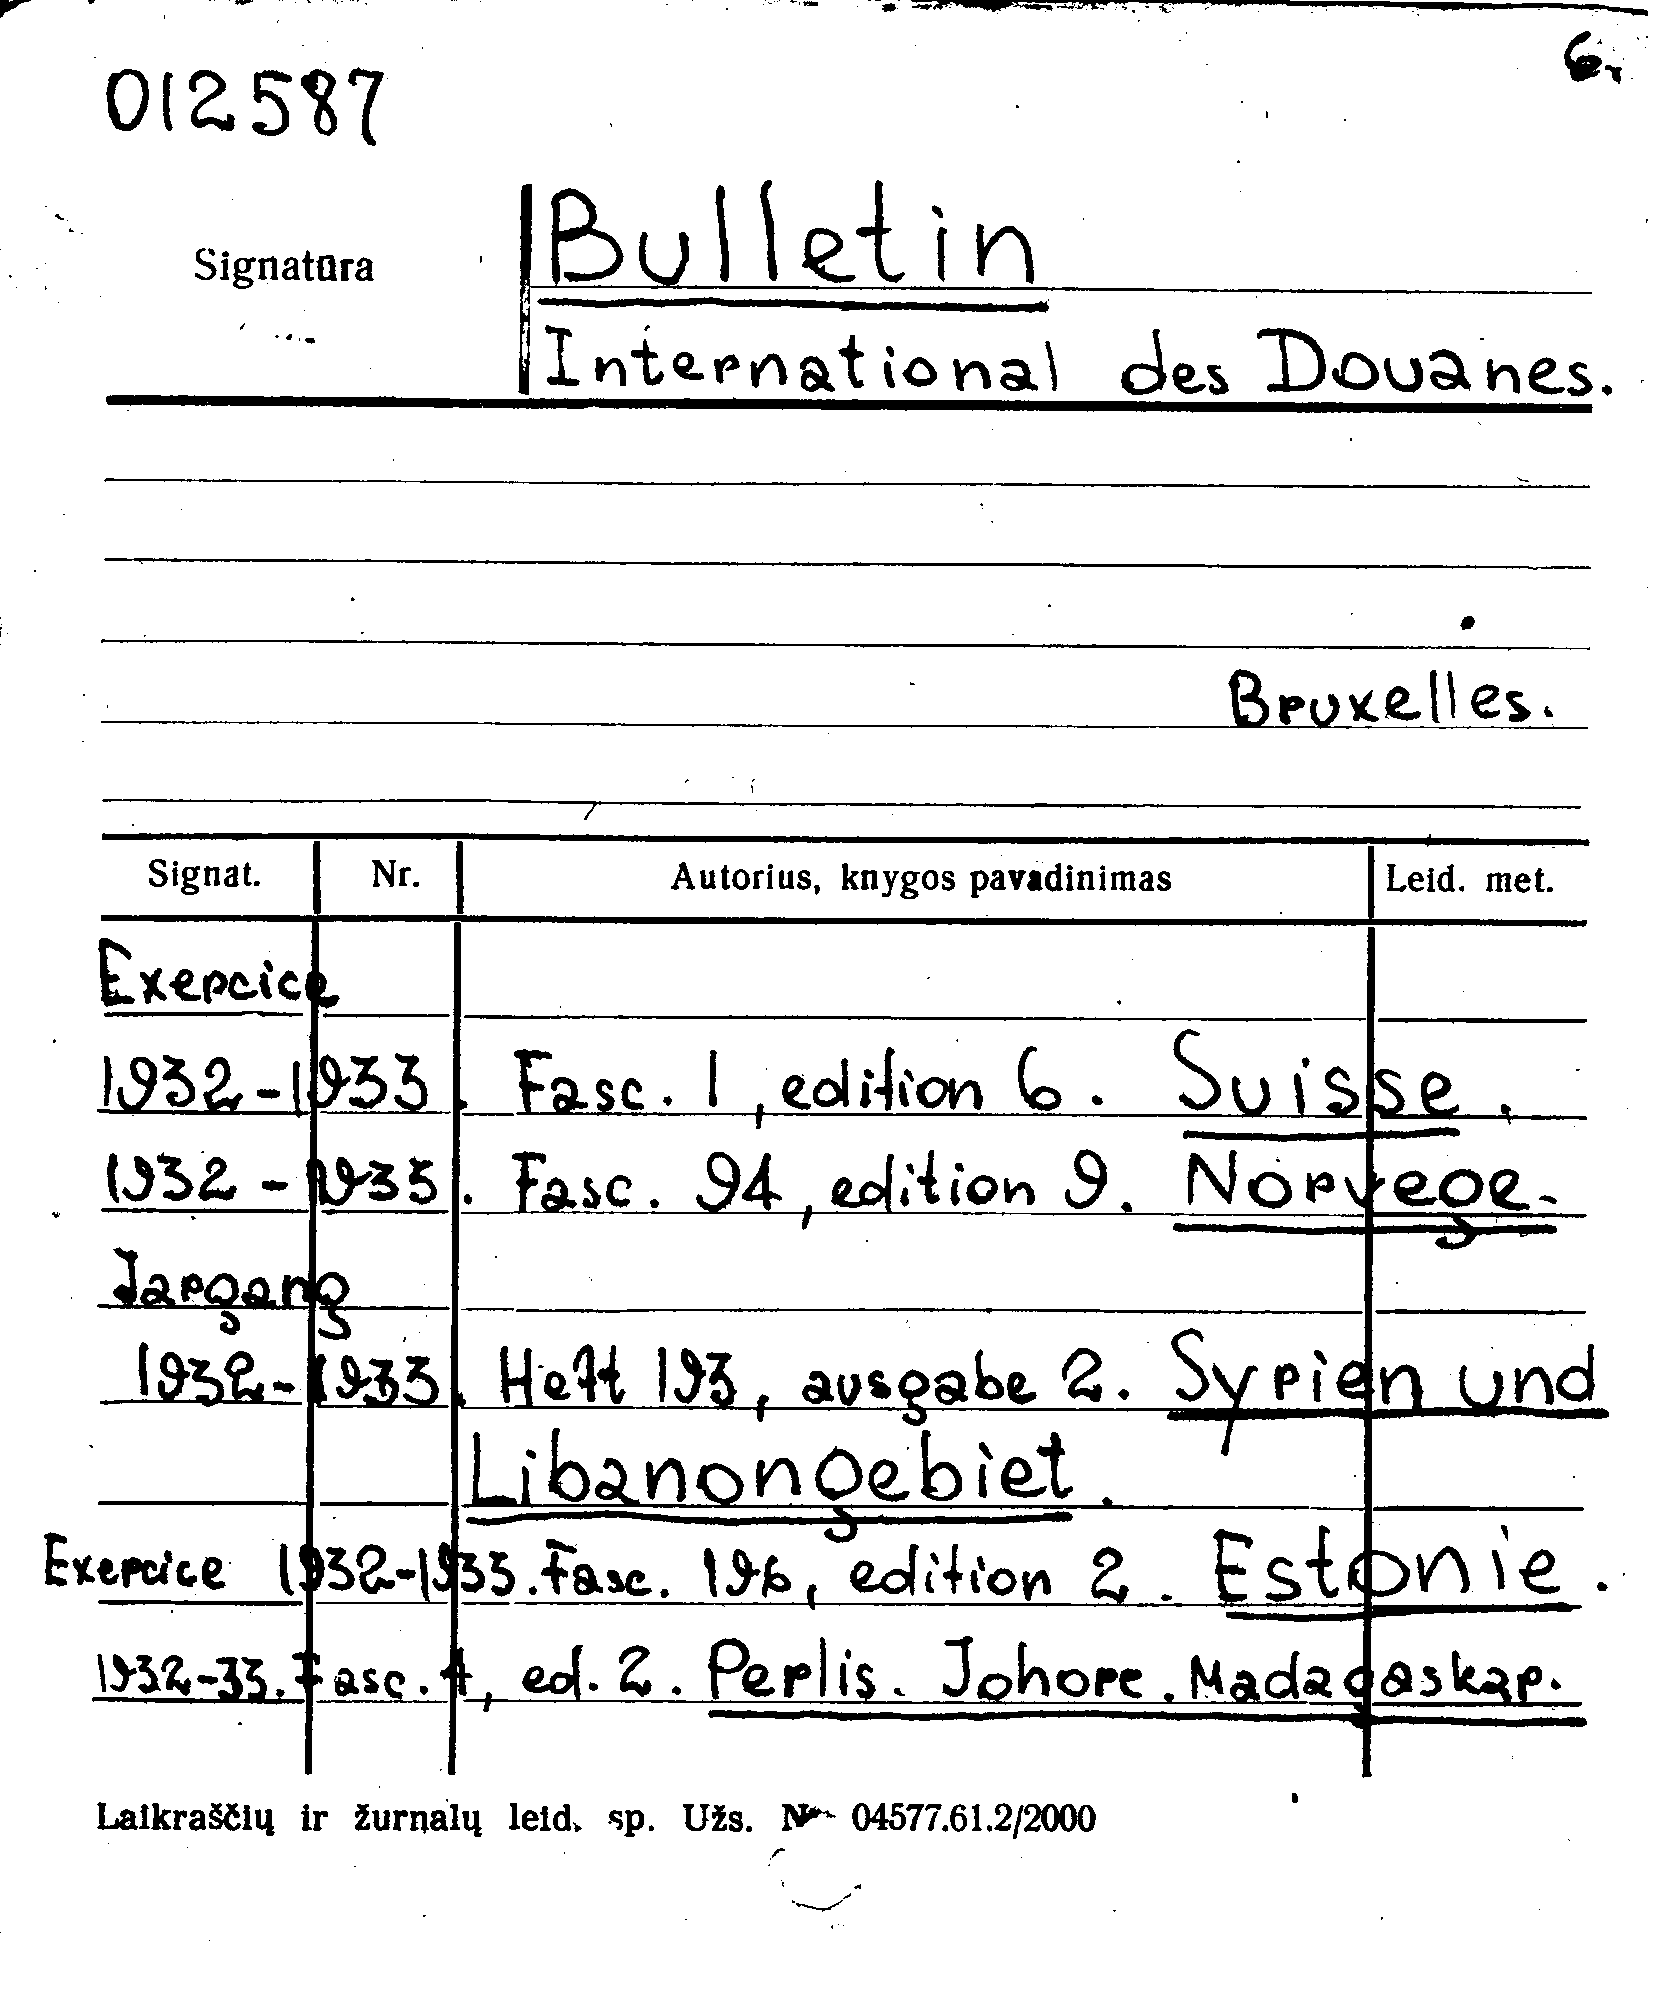 012587
6.
Signatūra
Bulletin
International des Douanes.
Bruxelles.
Signat. Nr. Autorius, knygos pavadinimas Leid. met.
Exercice
1932-1933. Fasc. 1, edition 6. Suisse.
1932-1933. Fasc. 94, edition 9. Norvege.
Jargang
1932-1933. Heft 193, ausgabe 2. Syrien und
Libanongebiet.
Exercice 1932-1933. Fasc. 196, edition 2. Estonie.
1932-33. Fasc. 4, ed. 2. Perlis. Johore. Madagaskar.
Laikraščių ir žurnalų leid. sp. Užs. № 04577.61.2/2000